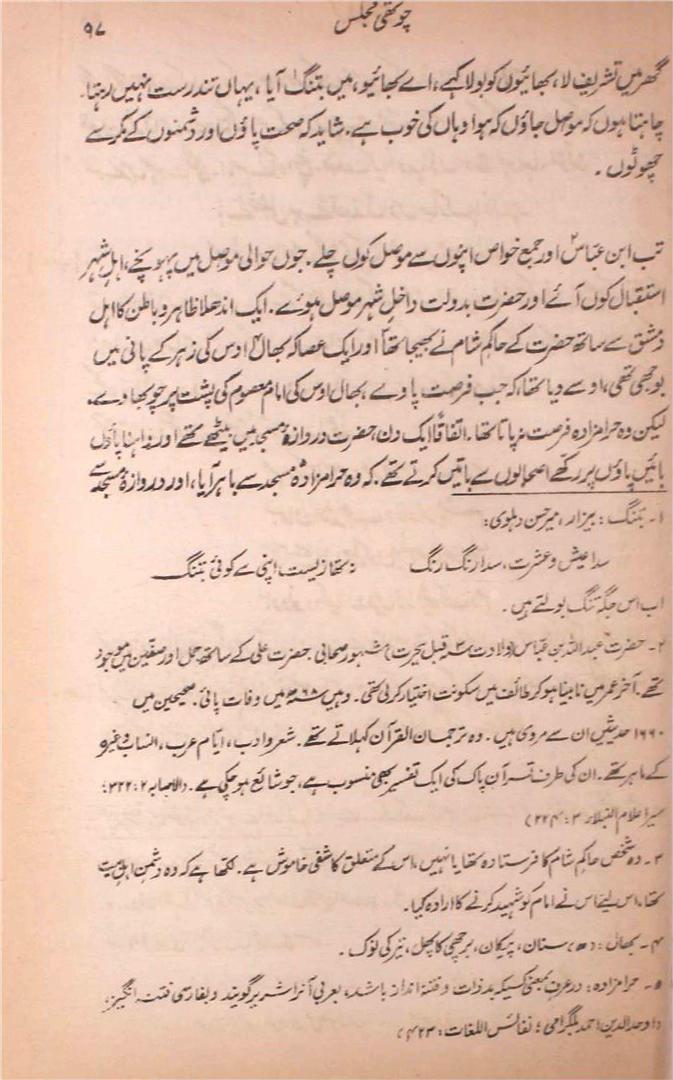 چوتھی مجلس
۹۷
گھر میں تشریف لا، بھائیوں کو بولا کہے، اے بھائیو، میں بتنگ۱ آیا، یہاں تندرست نہیں رہتا.
چاہتا ہوں کہ موصل جاؤں کہ ہوا وہاں کی خوب ہے. شاید کہ صحت پاؤں اور دشمنوں کے مکر سے
چھوٹوں.
تب ابن عباس۲ اور جمع خواص اپنوں سے موصل کوں چلے. جوں حوالی موصل میں پہونچے، اہلِ شہر
استقبال کوں آئے اور حضرت بدولت داخلِ شہر موصل ہوئے. ایک اندھلا ظاہر و باطن کا اہلِ
دمشق سے ساتھ حضرت کے حاکمِ شام نے بھیجا تھا۳ اور ایک عصا کہ بھال۴ اوس کی زہر کے پانی میں
بوجھی تھی، او سے دیا تھا، کہ جب فرصت پاوے، بھال اوس کی امام معصوم کی پشت پر چوبھاوے.
لیکن وہ حرامزادہ فرصت نہ پاتا تھا. اتفاقاً ایک دن، حضرت دروازۂ مسجد میں بیٹھے تھے اور داہنا پاؤں
بائیں پاؤں پر رکھے اصحابوں سے باتیں کرتے تھے. کہ وہ حرامزادہ۵ مسجد سے باہر آیا، اور دروازۂ مسجد سے
۱۔ بتنگ: بیزار، میر حسن دہلوی:
سدا عیش و عشرت، سدا رنگ رنگ نہ تھا زیست، اپنی سے کوئی بتنگ
اب اس جگہ تنگ بولتے ہیں.
۲۔ حضرت عبداللہ بن عباس (ولادت ۳ قبل ہجرت) مشہور صحابی. حضرت علی کے ساتھ جمل اور صفین میں موجود
تھے. آخر عمر میں نابینا ہو کر طائف میں سکونت اختیار کر لی تھی. وہیں ۶۸ھ میں وفات پائی. صحیحین میں
۱۶۶۰ حدیثیں ان سے مروی ہیں. وہ ترجمان القرآن کہلاتے تھے. شعر و ادب، ایّام عرب، انساب وغیرہ
کے ماہر تھے. ان کی طرف قرآن پاک کی ایک تفسیر بھی منسوب ہے، جو شائع ہو چکی ہے. (الاصابہ ۲: ۳۲۲؛
سیر اعلام النبلاء ۳: ۲۲۴)
۳۔ وہ شخص حاکم شام کا فرستادہ تھا یا نہیں، اس کے متعلق کاشفی خاموش ہے. لکھا ہے کہ وہ دشمنِ اہلِ بیت
تھا، اس لیے اس نے امام کو شہید کرنے کا ارادہ کیا.
۴۔ بھال: (ھ) سنان، پیکان، برچھی کا پھل، تیر کی نوک.
۵۔ حرامزادہ: در عرف بمعنی کسیکہ بدذات و فتنہ انداز باشد، بعربی آنرا شریر گویند و بفارسی فتنہ انگیز،
(اوحد الدین احمد بلگرامی؛ نفائس اللغات: ۴۲۳)